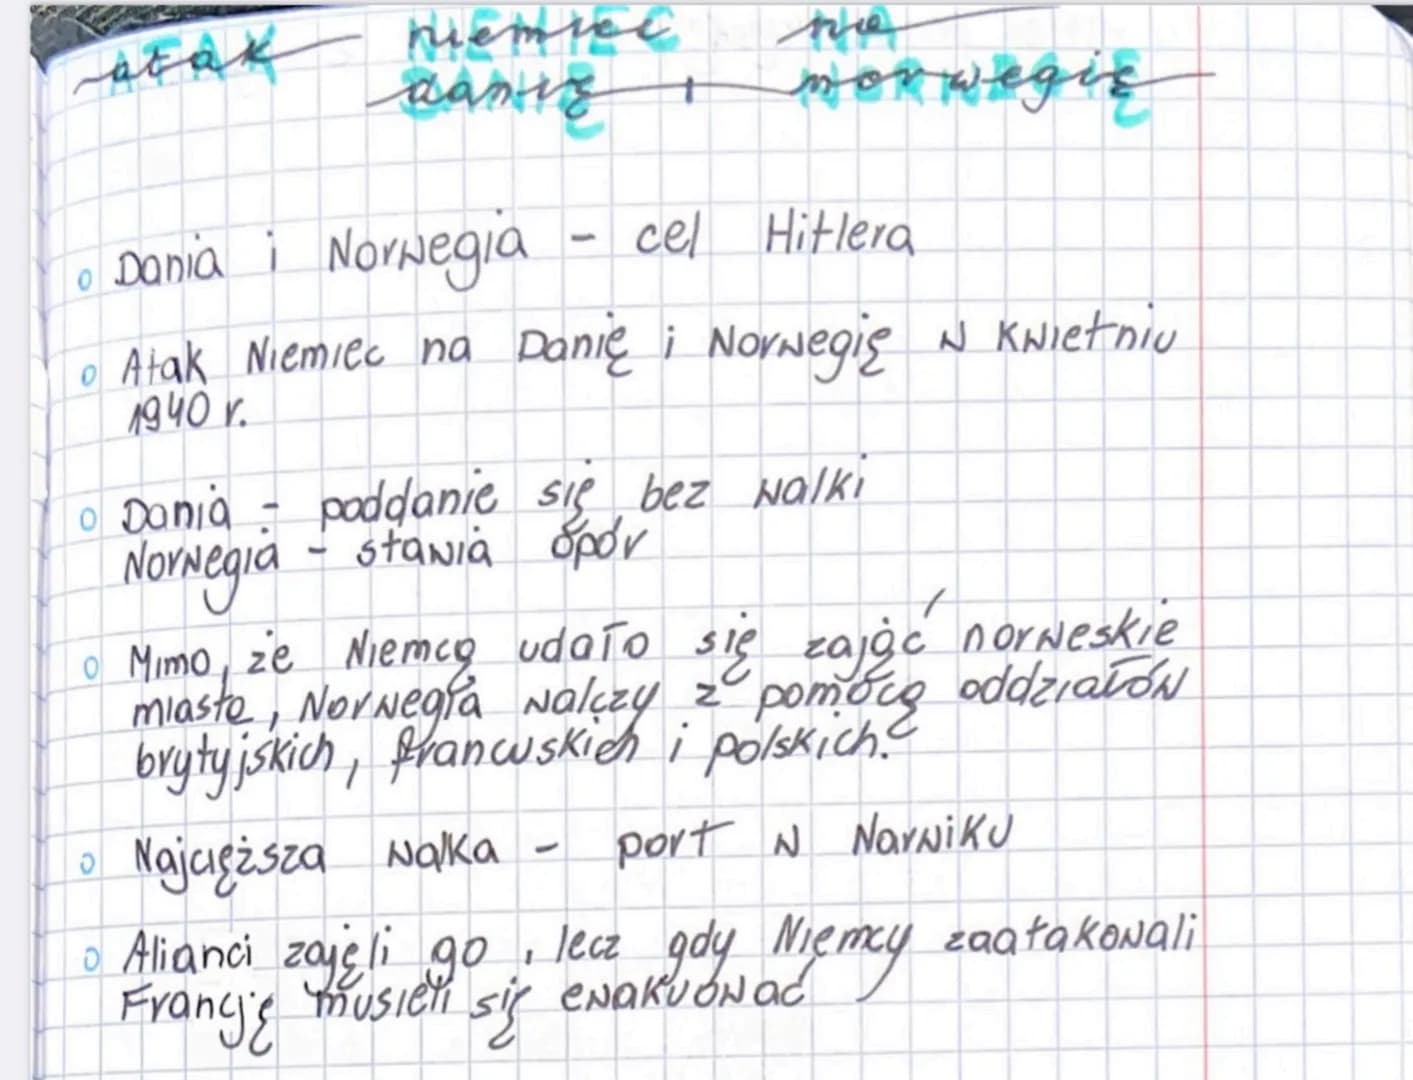 atak niemiec na
danię i norwegię
Dania i Norwegia - cel Hitlera
Atak Niemiec na Danię i Norwegię w kwietniu
1940 r.
Dania - poddanie się bez walki
Norwegia - stawia opór
Mimo, że Niemcą udało się zająć norweskie
miasta, Norwegia walczy z pomocą oddziałów
brytyjskich, francuskich i polskich.
Najcięższa walka - port w Narwiku
Alianci zajęli go, lecz gdy Niemcy zaatakowali
Francję musieli się ewakuować